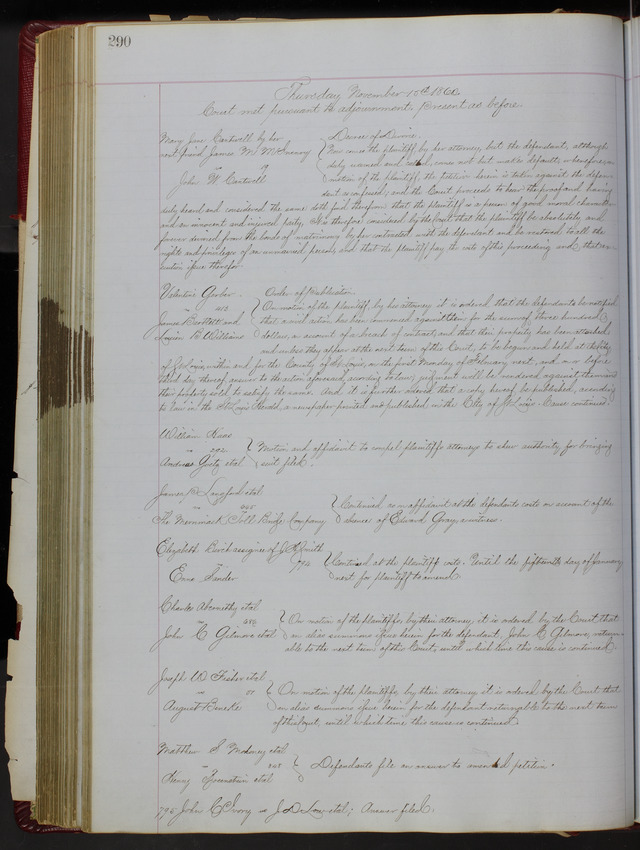 290
Thursday November 15th 1860.
Court met pursuant to adjournment, present as before.
Mary Jane Cantwell by her
next friend James M.
vs
John W. Cantwell
Decree of Divorce.
Now comes the plaintiff by her attorney, but the defendant, although
duly warned and called, comes not but makes default; whereupon on
motion of the plaintiff the petition herein is taken against the defen-
dant as confessed; and the Court proceeds to hear the proof and having
duly heard and considered the same doth find therefrom that the plaintiff is a person of good moral character
and an innocent and injured party. It is therefore considered by the Court that the plaintiff be absolutely and
forever divorced from the bonds of matrimony by her contracted with the defendant and be restored to all the
rights and privileges of an unmarried person, and that the plaintiff pay the costs of this proceeding and that exe-
cution issue therefor.
Valentine Gerber
vs
James and
B Williams
Order of Publication.
On motion of the plaintiff, by his attorney it is ordered that the defendants be notified
that a civil action has been commenced against them for the sum of three hundred
dollars, on account of a breach of contract, and that their property has been attached,
and unless they appear at the next term of this Court, to be begun and held at the City
of St Louis, within and for the County of St Louis, on the first Monday of February next, and on or before
third day thereof, answer to the action aforesaid, according to law, judgment will be rendered against them and
their property sold to satisfy the same. And it is further ordered that a copy hereof be published, according
to law in the St Louis Herald, a newspaper printed and published in the City of St Louis. Cause continued.
William
292
Andreas et al
Motion and affidavit to compel plaintiffs attorneys to shew authority for bringing
suit filed.
James Lansford et al
The Merrimack Toll Bridge Company
Continued as on affidavit at the defendants costs on account of the
absence of Edward Gray, a witness.
Elizabeth Birch assignee of J Smith
774
Enno Sander
Continued at the plaintiffs costs. Until the fifteenth day of January
next for plaintiff to amend.
Charles Abernethy et al
vs
John C Gilmore et al
On motion of the plaintiffs, by their attorney, it is ordered by the Court that
an alias summons issue herein for the defendant, John C Gilmore, return-
able to the next term of this Court, until which time this cause is continued.
Joseph W Fisher et al
vs
August
On motion of the plaintiffs, by their attorney it is ordered by the Court that
an alias summons issue herein for the defendant returnable to the next term
of this Court, until which time this cause is continued.
Matthew S et al
Henry et al
Defendants file an answer to amended petition.
795 John C Ivory vs J D Low et al; Answer filed.